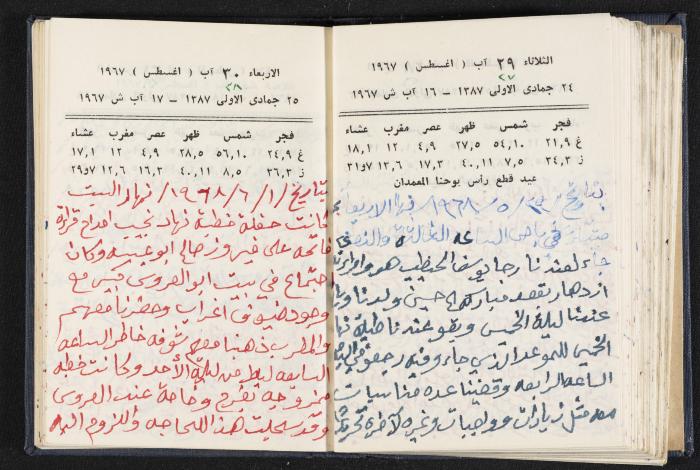 الثلاثاء ٢٩ آب ( اغسطس ) ١٩٦٧
٢٧
٢٤ جمادي الاولى ١٣٨٧ – ١٦ آب ش ١٩٦٧
فجر شمس ظهر عصر مغرب عشاء
غ ٢١,٩ ٥٤,١٠ ٢٧,٥ ٤,٩ ١٢ ١٨,١
ز ٢٤,٣ ٧,٥ ٤٠,١١ ١٧,٣ ١٣,٦ ٣١و٧
عيد قطع رأس يوحنا المعمدان
بتاريخ ١٩٦٨/٥/ الاربعاء
في الساعه الثالثة والنصف
جاء لعندنا رجا يوسف الخطيب هو
ازدهار بقصد مباركه حسين ولدنا
عندنا ليلة الخميس وبقو عندنا
الخميس للموعد الذي جاء وفيه رجعو
الساعه الرابعه وقضينا عده مناسبات
معهم مثل زيارات وواجبات وغيره
الاربعاء ٣٠ آب ( اغسطس ) ١٩٦٧
٢٨
٢٥ جمادي الاولى ١٣٨٧ – ١٧ آب ش ١٩٦٧
فجر شمس ظهر عصر مغرب عشاء
غ ٢٤,٩ ٥٦,١٠ ٢٨,٥ ٤,٩ ١٢ ١٧,١
ز ٣٦,٣ ٨,٥ ٤٠,١١ ١٦,٣ ١٢,٦ ٢٩و٧
بتاريخ ١٩٦٨/٦/١ نهار السبت
كانت حفلة خطبة نهاد نجيب قراة
فاتحه على فيروز صالح ابو غيبه وكان
اجتماع في بيت ابو العروس قيس مع
وجود ضيوف اغراب وحضرنا معهم
والمطرب ذهبنا معهم شوفه خاطر الساعه
السابعه ليلا من ليلة الأحد وكانت خطبه
مزوجه بفرح وخاصة عند العروس
وقد سجلت هذا للحاجه واللزوم اليه